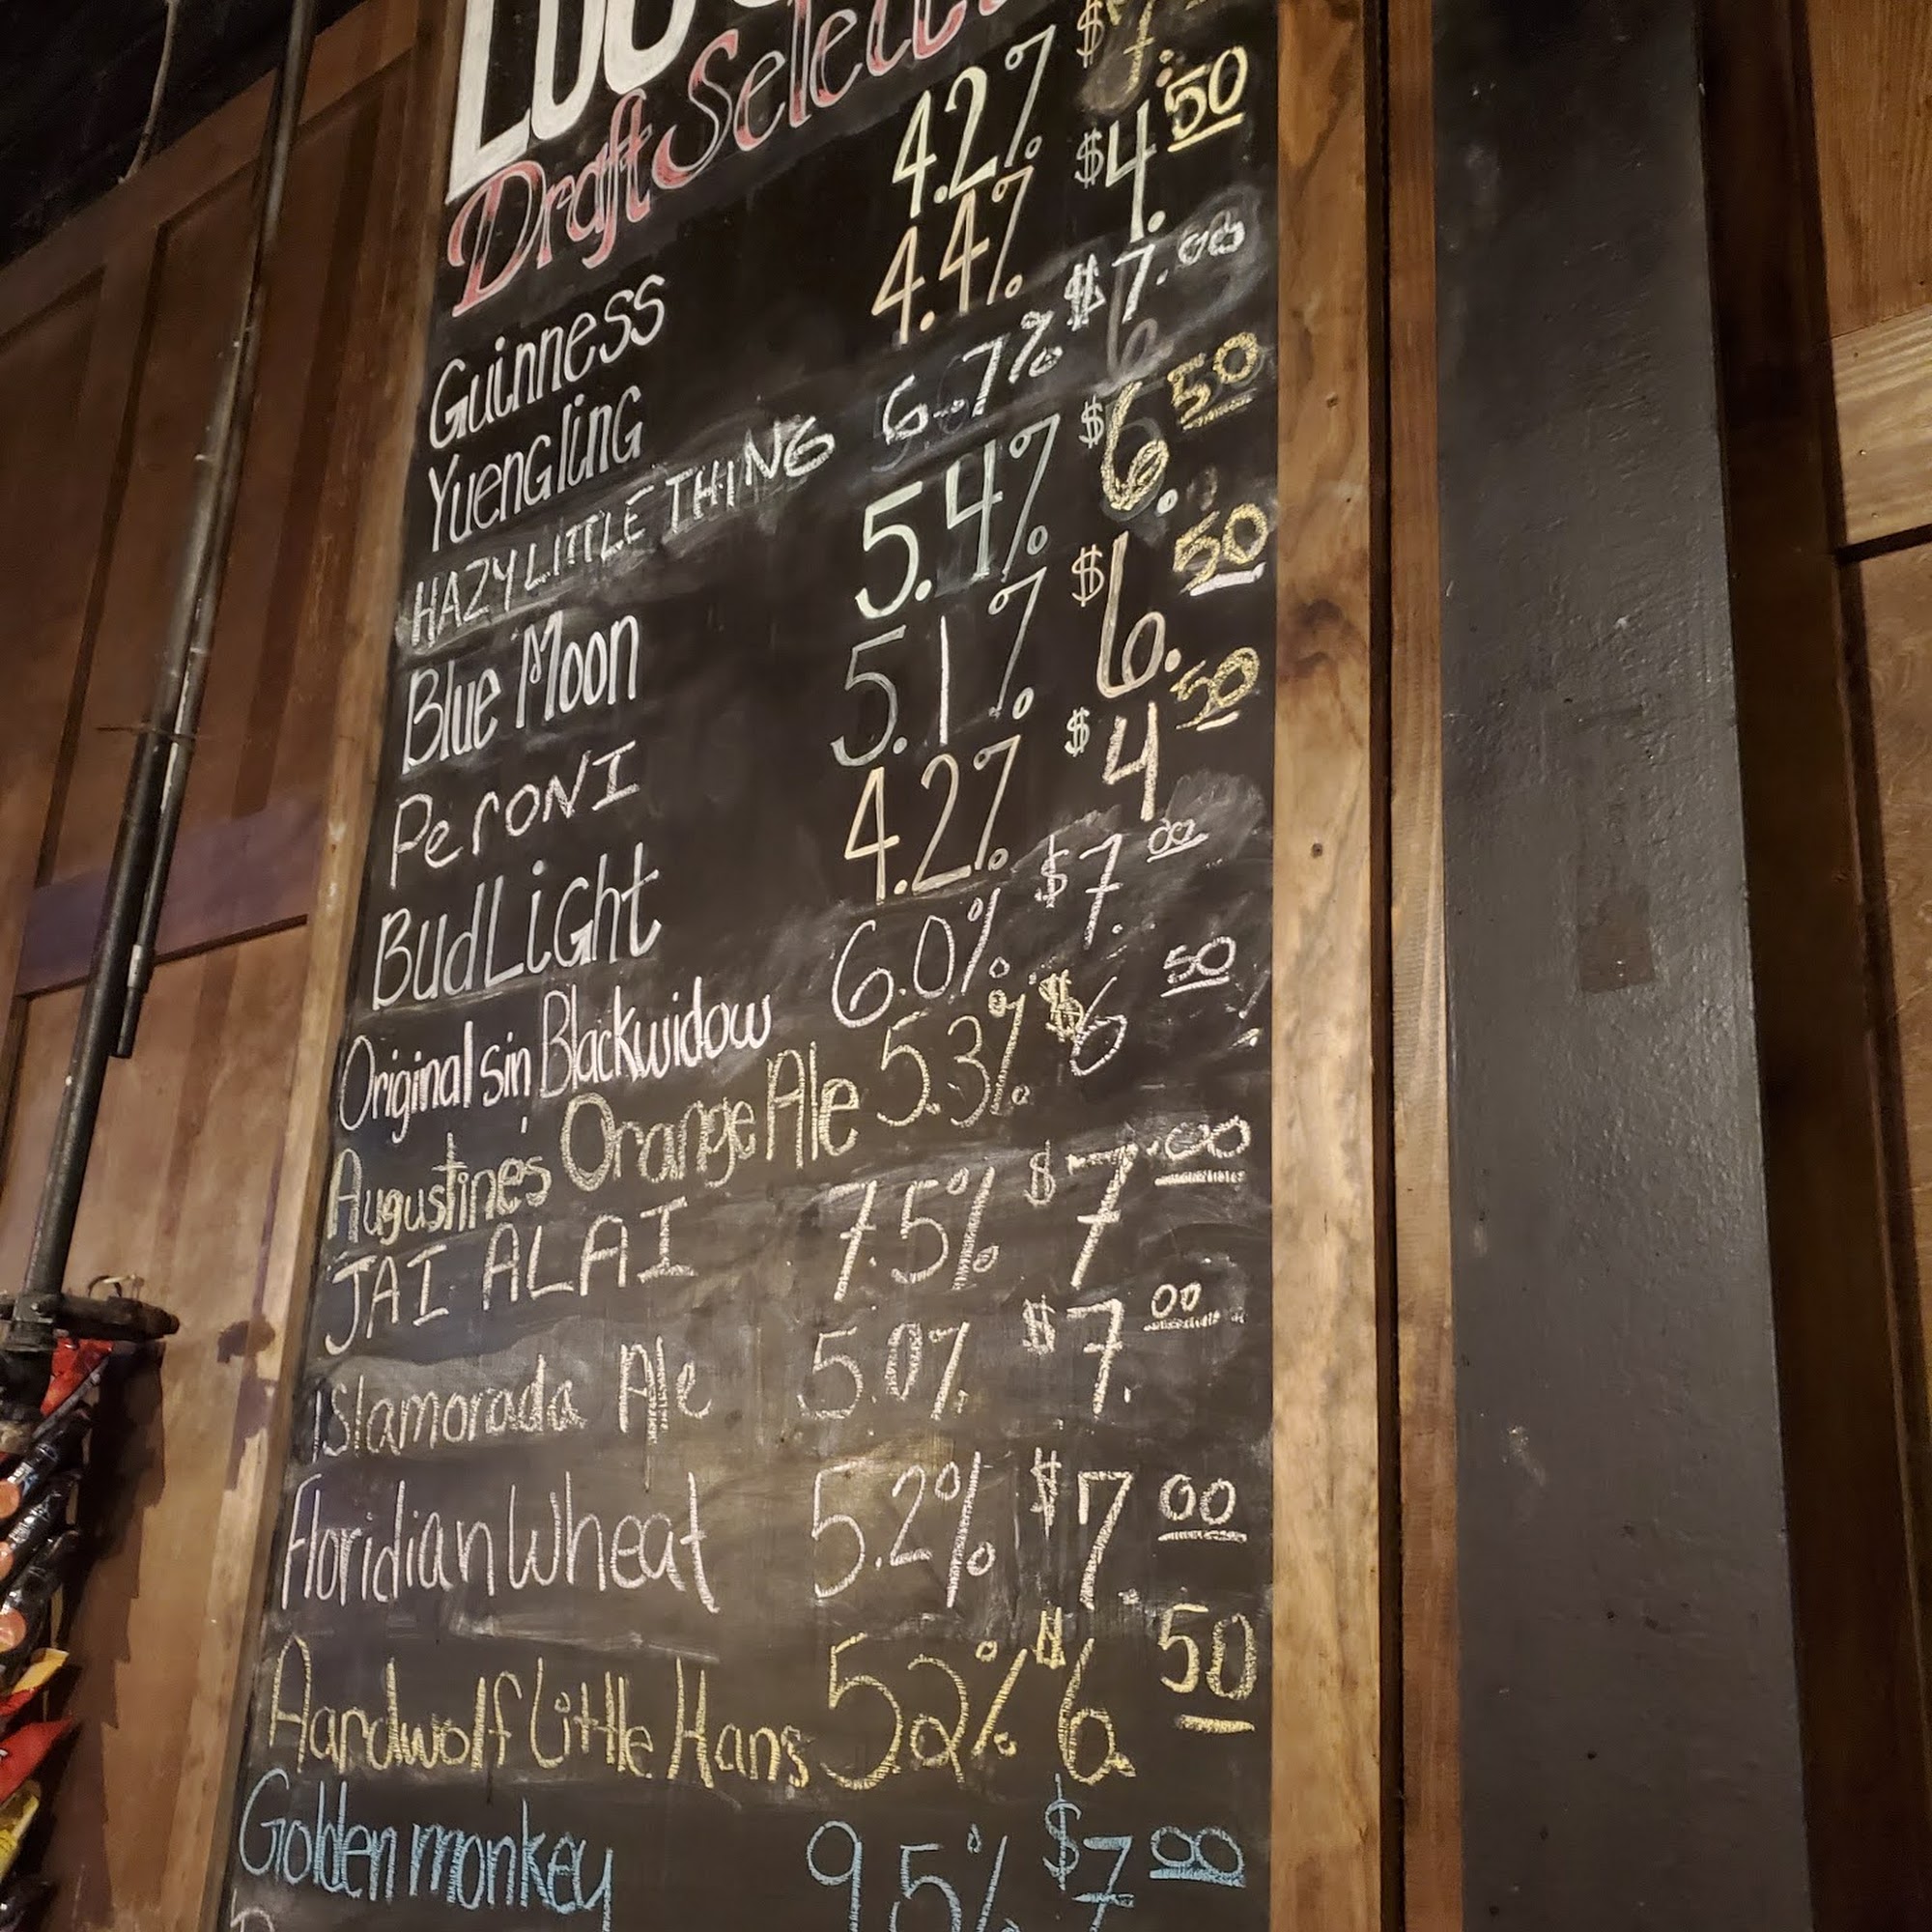 Draft
Guinness 4.2% $7.
Yuengling 4.4% $4.50
HAZY LITTLE THING 6.7% $7.00
Blue Moon 5.4% $6.50
PeroNI 5.1% $6.50
BudLiGht 4.2% $4 50
Original sin Blackwidow 6.0% $7.00
Augustine's Orange Ale 5.3% $6 50
JAI ALAI 7.5% $7.00
Islamorada Ale 5.0% $7.00
Floridian Wheat 5.2% $7.00
Aardwolf Little Hans 5.2% $6.50
Golden monkey 9.5% $7 00